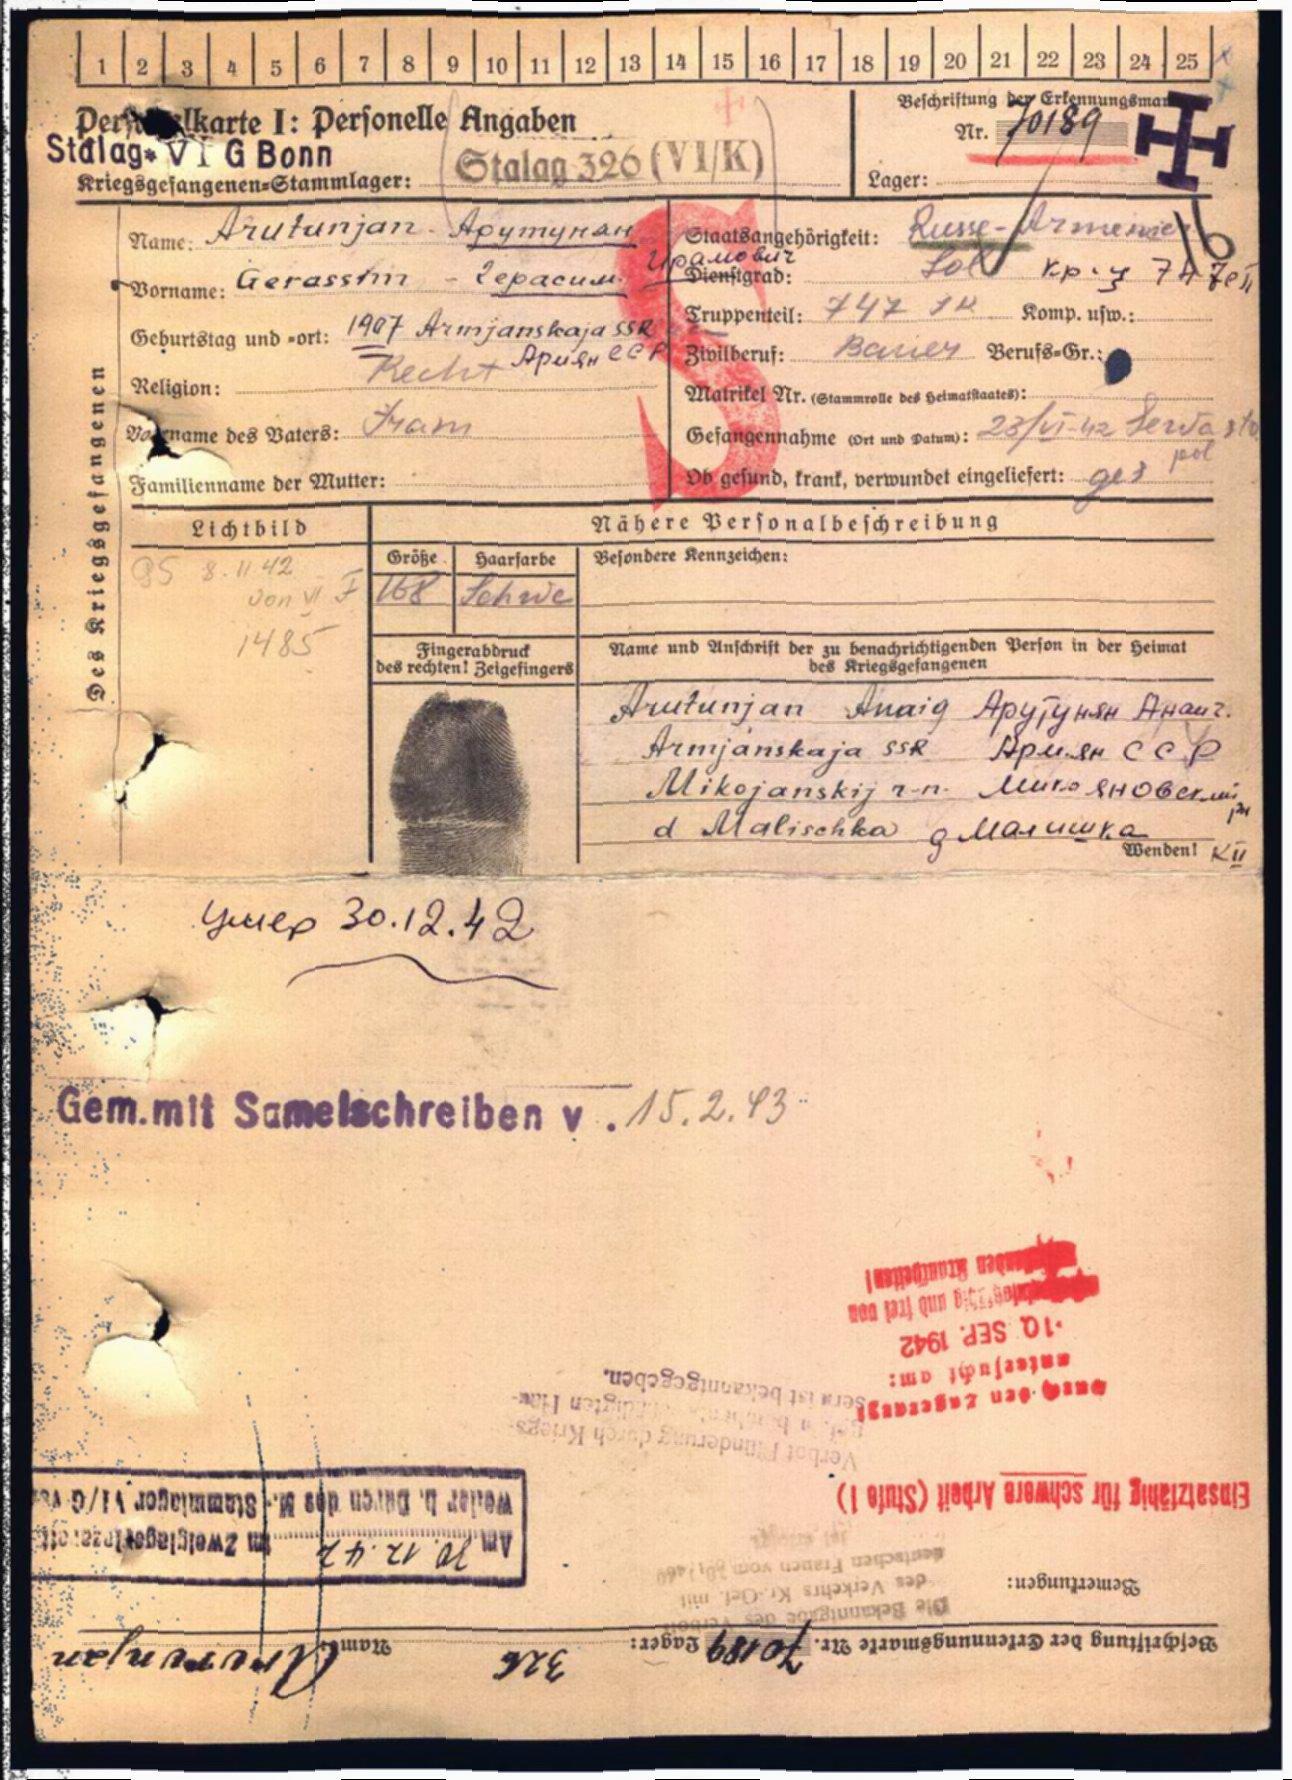 1 2 3 4 5 6 7 8 9 10 11 12 13 14 15 16 17 18 19 20 21 22 23 24 25
Personalkarte I: Personelle Angaben
Stalag VI G Bonn
Stalag 326 (VI/K)
Kriegsgefangenen=Stammlager:
Beschriftung der Erkennungsmarke
Nr. 70189
Lager:
Des Kriegsgefangenen
Name: Arutunjan - Арутунян
Vorname: Gerassim - Герасим Ирамович
Geburtstag und =ort: 1907 Armjanskaja SSR
Армян ССР
Religion:
Vorname des Vaters: Iram
Familienname der Mutter:
Staatsangehörigkeit: Russe - Armenier
Dienstgrad: Sol
Truppenteil: 747 Komp. usw.:
Zivilberuf: Bauer Berufs=Gr.:
Matrikel Nr. (Stammrolle des Heimatstaates):
Gefangennahme (Ort und Datum): 23/VI-42 Sewastopol
Ob gesund, krank, verwundet eingeliefert: ges
Lichtbild
Nähere Personalbeschreibung
8.11.42
von VI F
1485
Größe Haarfarbe Besondere Kennzeichen:
168
Fingerabdruck
des rechten! Zeigefingers
Name und Anschrift der zu benachrichtigenden Person in der Heimat
des Kriegsgefangenen
Arutunjan Anaig Арутунян Анаиг.
Armjanskaja SSR Армян ССР
Mikojanskij r-n. Микояновский рн
d Malischka д Малишка
Wenden! К II
умер 30.12.42
Gem.mit Samelschreiben v . 15.2.43
Beschriftung der Erkennungsmarke Nr. 70189 Lager: 326 Name: Arutunjan
Bemerkungen:
Die Bekanntgabe des Verbots
des Verkehrs Kr.-Gef. mit
deutschen Frauen vom
ist erfolgt
Am 30.12.42 im Zweiglager
Weiler b. Düren des M.-Stammlager VI/G
Einsatzfähig für schwere Arbeit (Stufe I)
Verbot Plünderung durch Kriegs-
sern ist bekanntgegeben.
durch den Lagerarzt
untersucht am:
10. SEP. 1942
und frei von
Krankheiten!